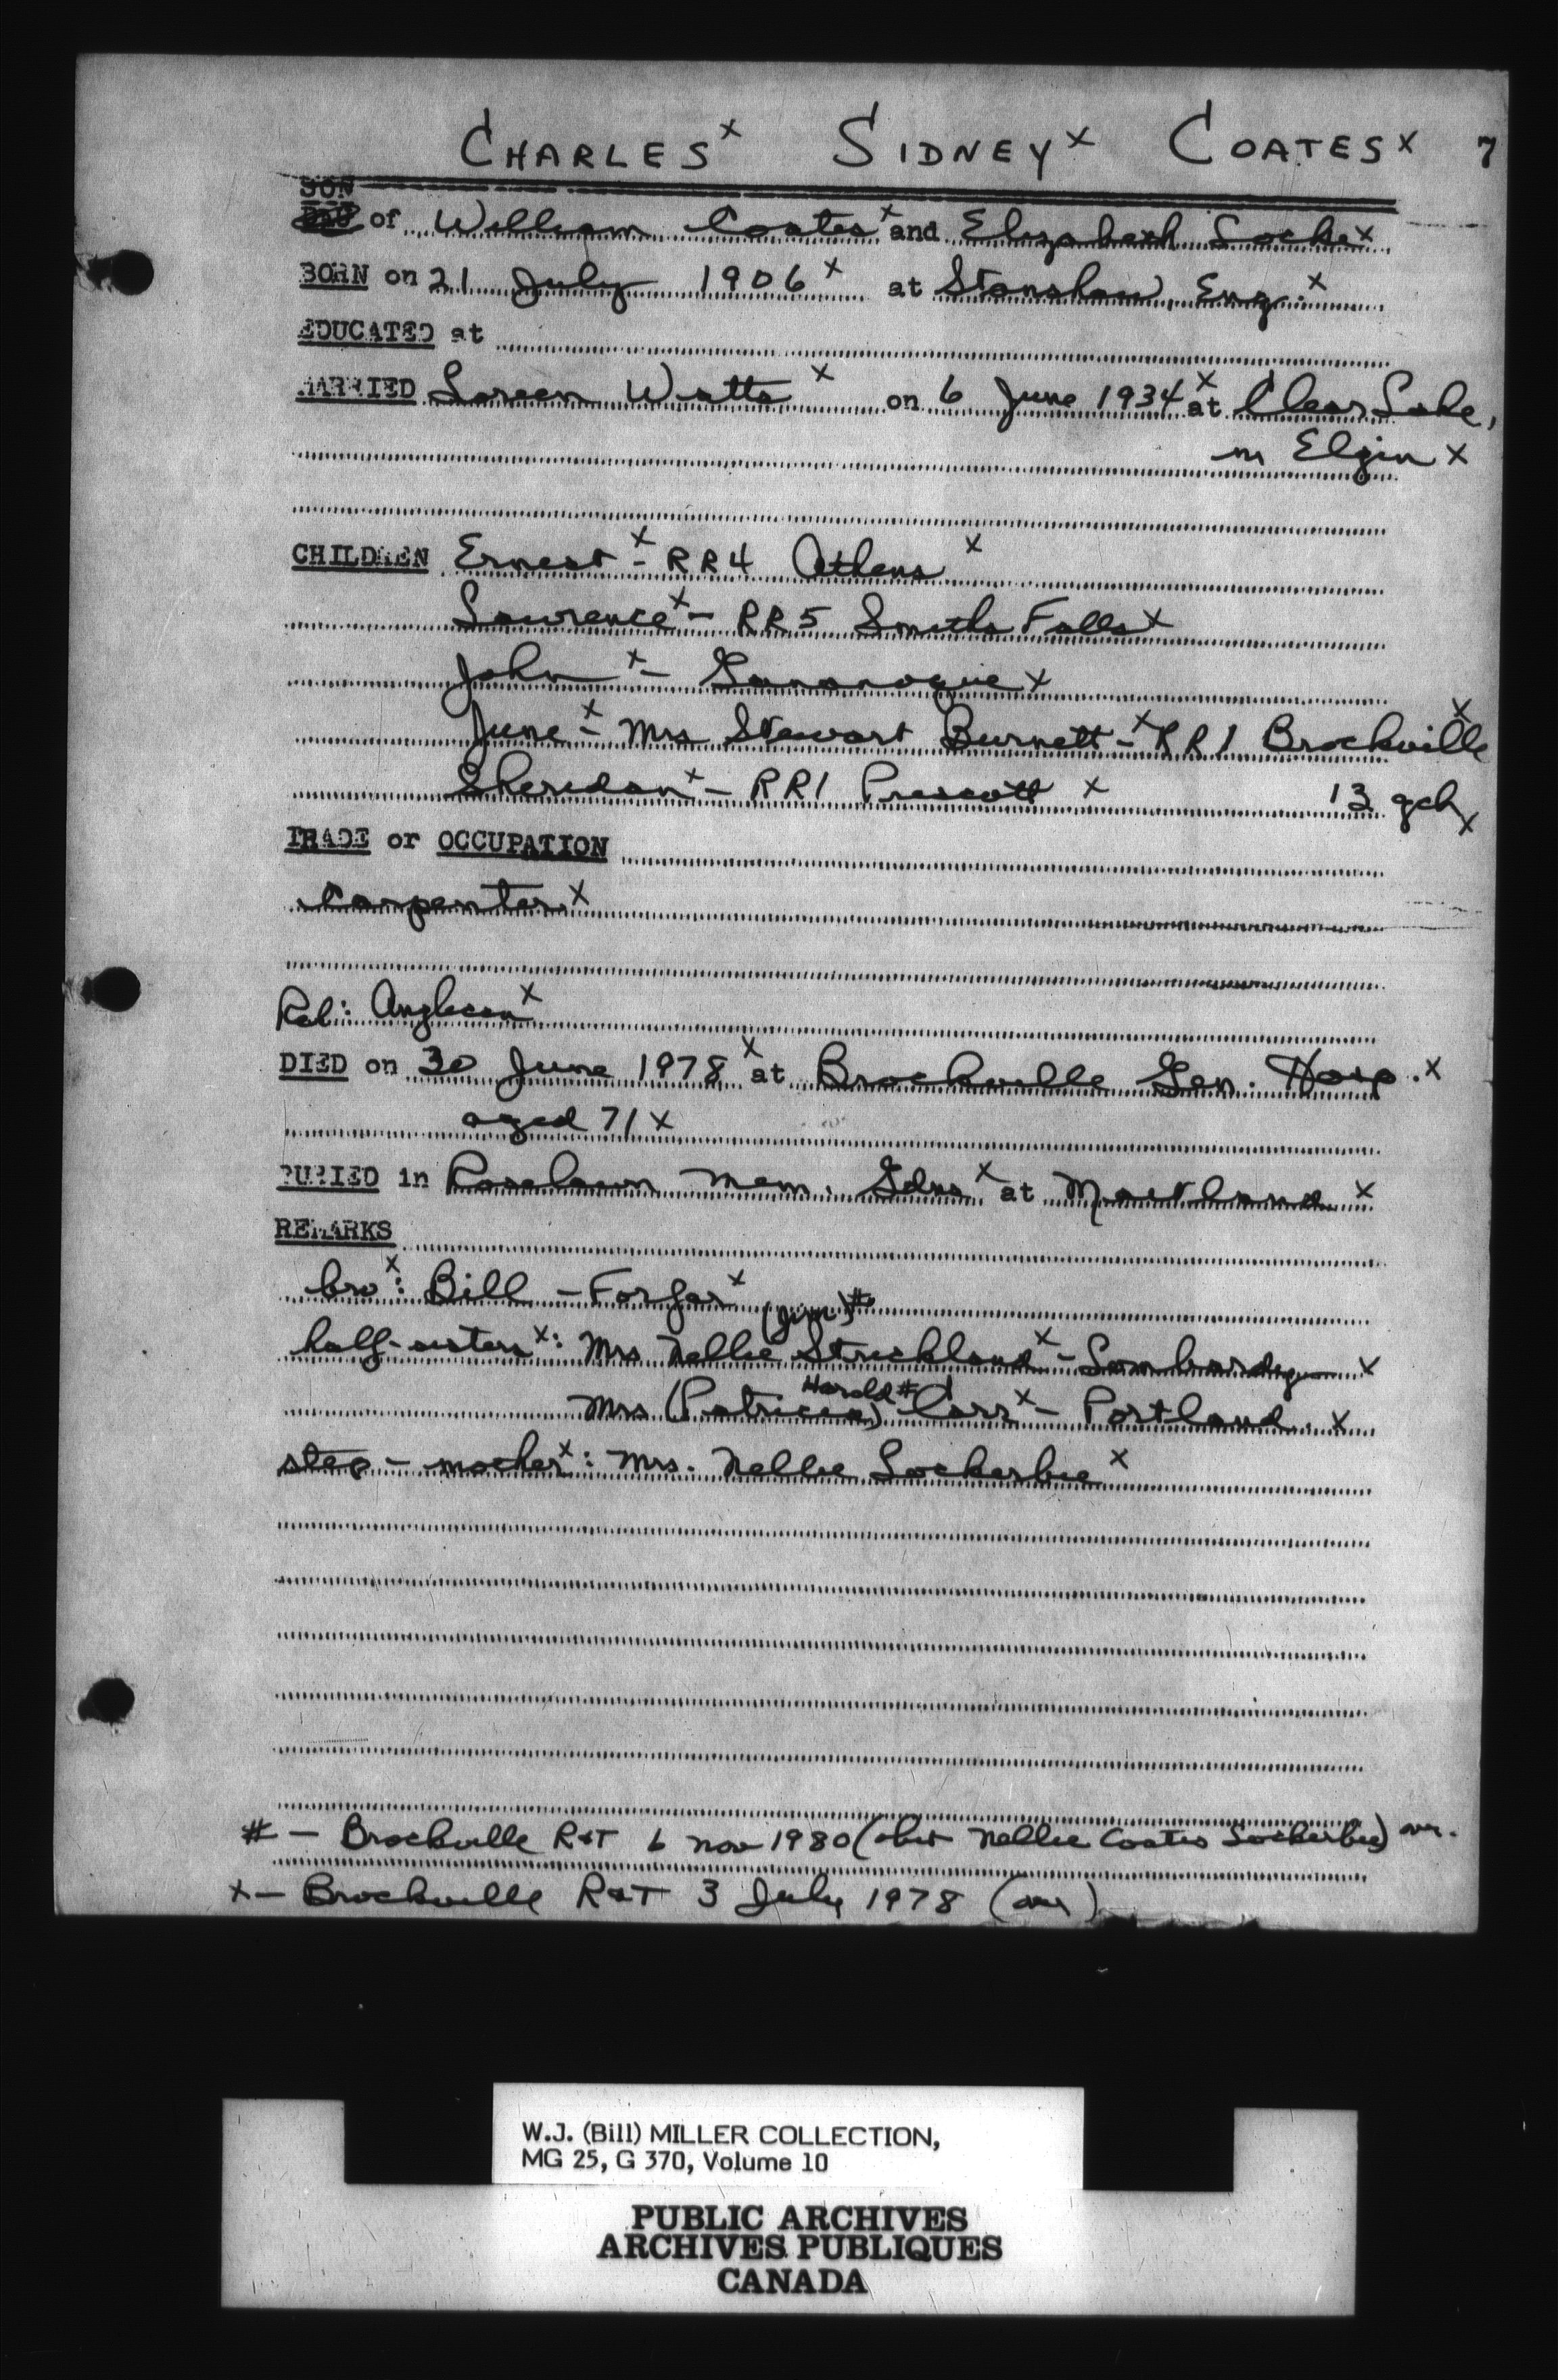 CHARLES x SIDNEY x COATES x 7
SON
of William Coates x and Elizabeth Locke x
BORN on 21 July 1906 x at Stanshaw, Eng. x
EDUCATED at
MARRIED Loreen Watts x on 6 June 1934 x at Clear Lake,
nr Elgin x
CHILDREN Ernest x - RR4 Athens x
Lawrence x - RR5 Smiths Falls x
John x - Gananoque x
June x - Mrs Stewart Burnett x - RR1 Brockville x
Sheridan x - RR1 Prescott x 13 gch x
TRADE or OCCUPATION
Carpenter x
Rel: Anglican x
DIED on 30 June 1978 x at Brockville Gen. Hosp. x
aged 71 x
BURIED in Roselawn Mem. Gdns x at Maitland x
REMARKS
bro x: Bill - Forfar x
(Jim) #
half-sisters x: Mrs Nellie Strickland x - Lombardy x
Harold #
Mrs (Patricia) Carr x - Portland x
step-mother x: Mrs. Nellie Lockerbie x
# - Brockville R&T 6 Nov 1980 (obit Nellie Coates Lockerbie)
x - Brockville R&T 3 July 1978
W.J. (Bill) MILLER COLLECTION,
MG 25, G 370, Volume 10
PUBLIC ARCHIVES
ARCHIVES PUBLIQUES
CANADA